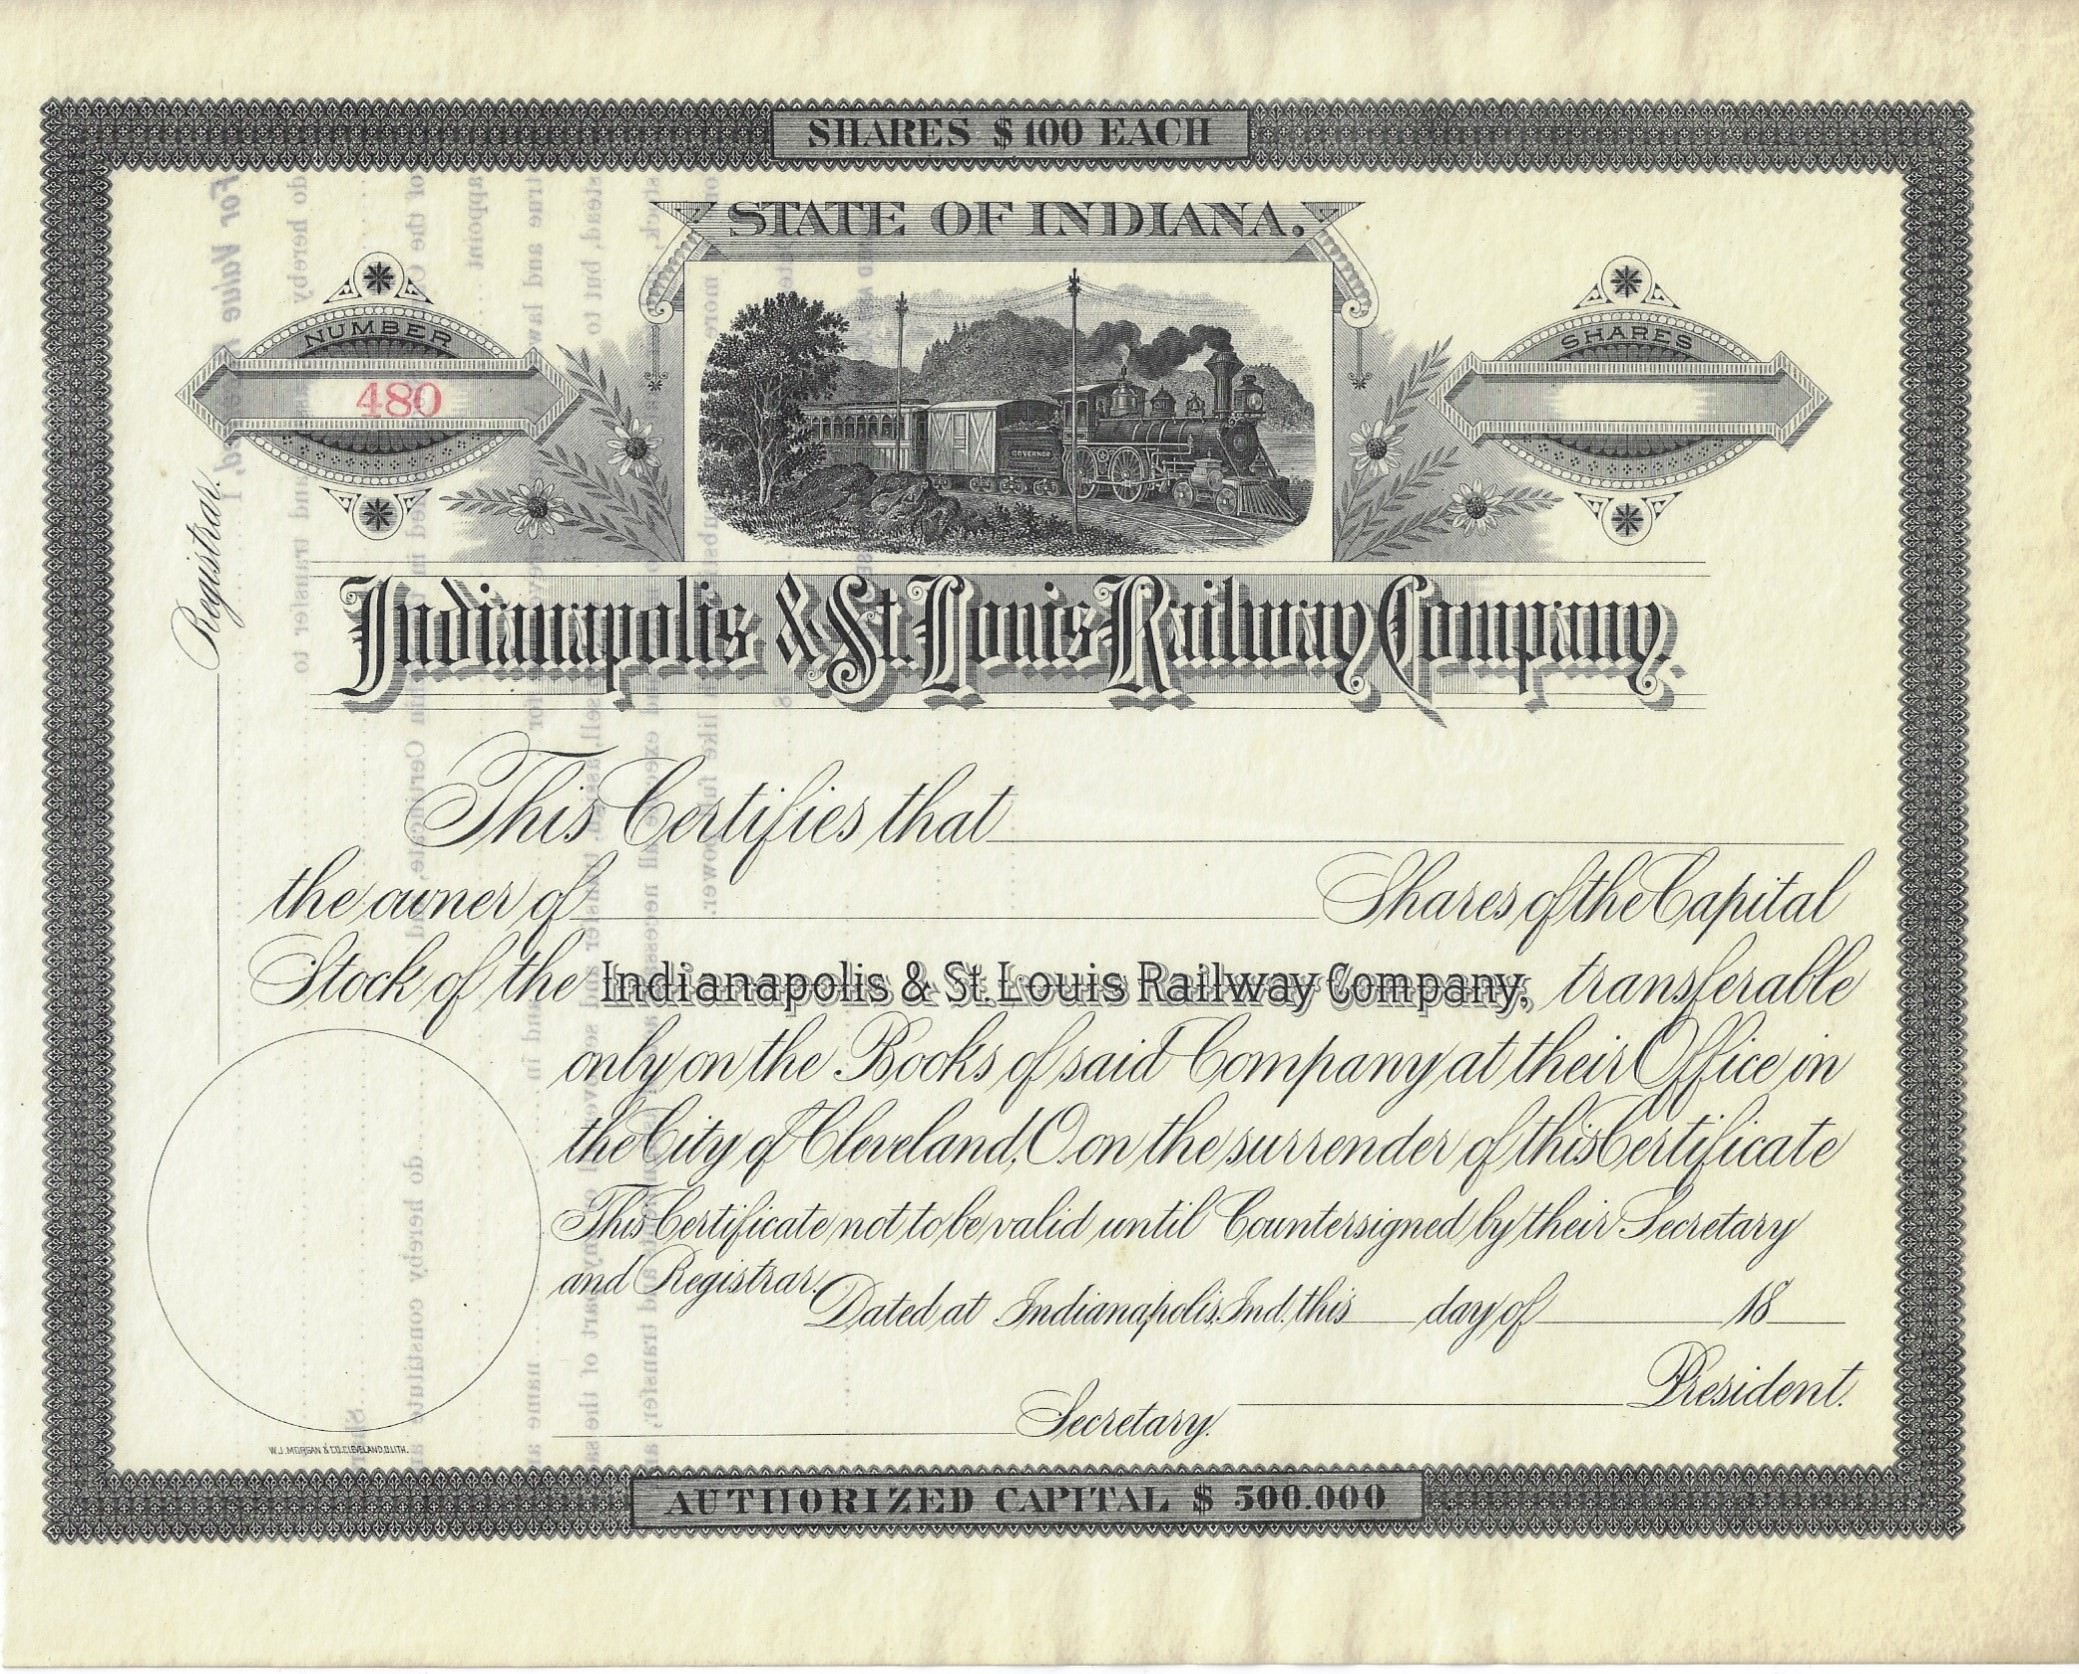 SHARES $100 EACH
STATE OF INDIANA.
NUMBER
480
SHARES
GOVERNOR
Registrar.
Indianapolis & St. Louis Railway Company.
This Certifies that
the owner of Shares of the Capital
Stock of the Indianapolis & St. Louis Railway Company, transferable
only on the Books of said Company at their Office in
the City of Cleveland, O. on the surrender of this Certificate
This Certificate not to be valid until Countersigned by their Secretary
and Registrar.
Dated at Indianapolis, Ind. this day of 18
President.
Secretary.
W.J. MORGAN & CO. CLEVELAND, O. LITH.
AUTHORIZED CAPITAL $ 500.000